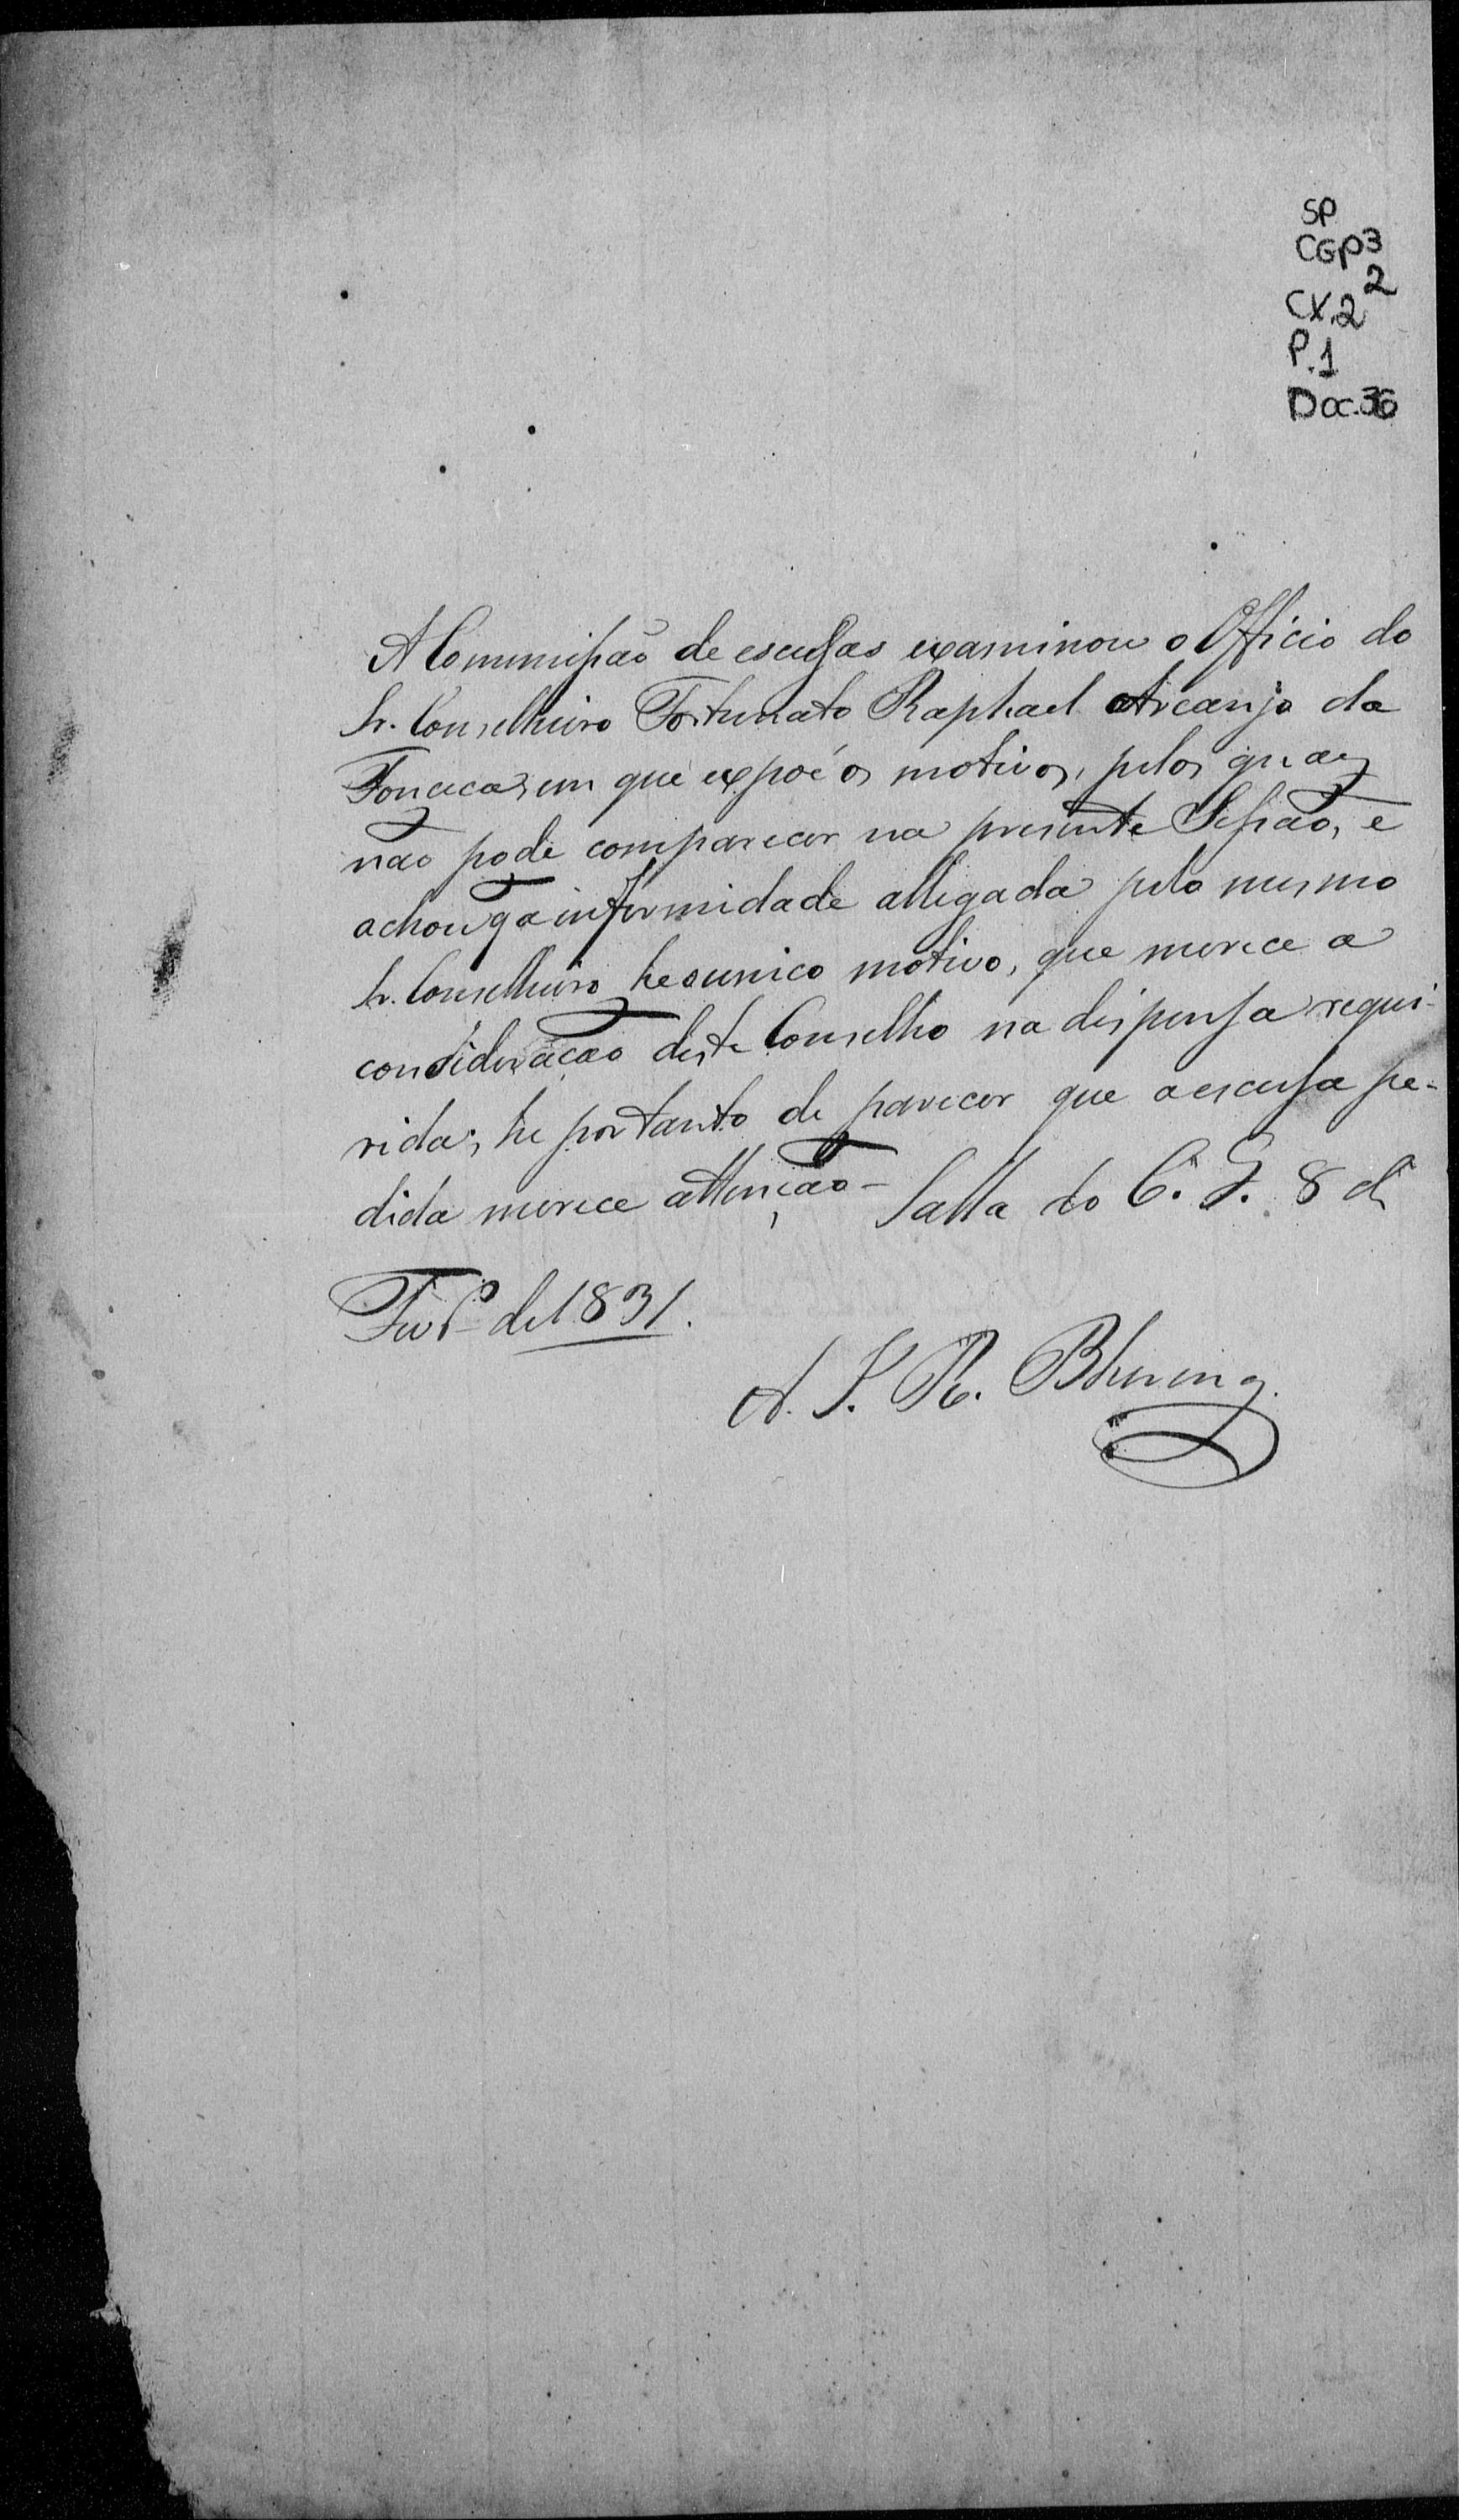 SP
CGP3
2
CX.2
P.1
Doc.36
A Commissão de escusas examinou o Officio do
Sr. Conselheiro Fortunato Raphael Arcanjo da
Fonceca, em que expoẽ os motivos, pelos quaes
não pode comparecer na presente Sessão, e
achou q a infermidade allegada pelo mesmo
Sr. Conselheiro he o unico motivo, que merece a
consideração deste Conselho na dispensa reque-
rida; he portanto de parecer que a escusa pe-
dida merece attenção – Salla do C. G. 8 de
Fevro de 1831.
A. J. R. Bhering.